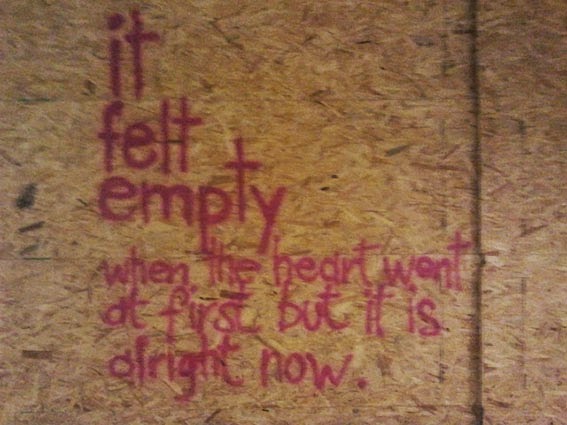 it
felt
empty
when the heart went
at first but it is
alright now.